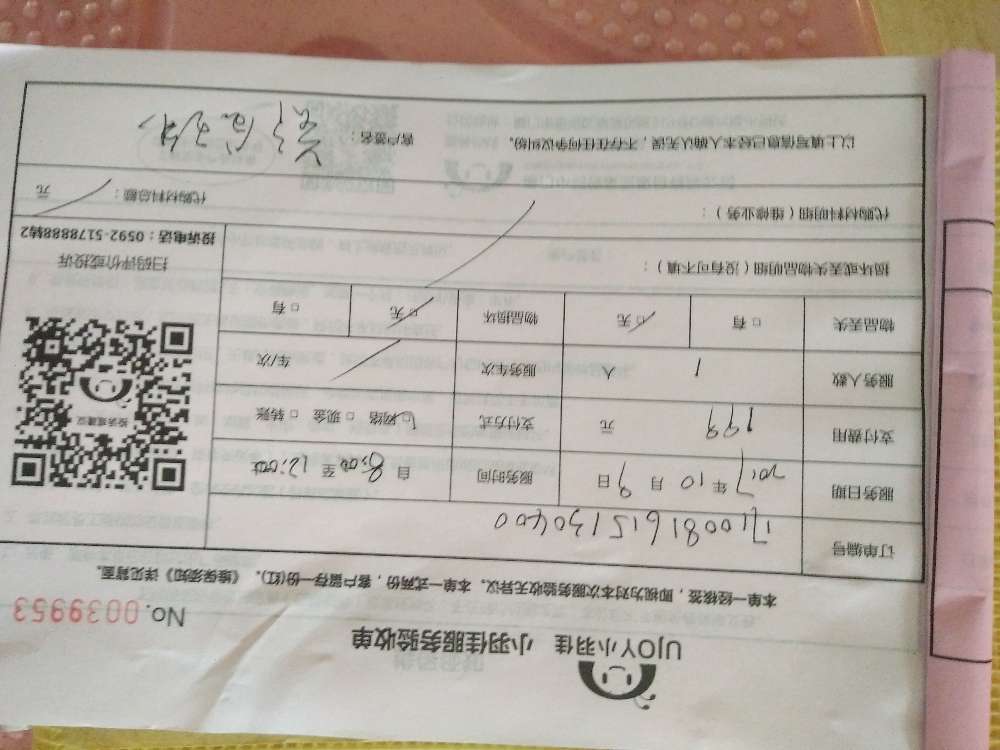 UJOY小羽佳 小羽佳服务验收单
No. 0039953
本单一经核签，即视为对本次服务验收无异议。本单一式两份，客户留存一份(红)。《维保须知》详见背面。
订单编号 1710081615130400
服务日期 2017年10月9日 服务时间 自8:00至12:00止
支付费用 199 元 支付方式 ☑网络 □现金 □转账
服务人数 1 人 服务车次 车/次
物品丢失 □有 ☑无 物品损坏 ☑无 □有
投诉或建议
扫码评价或投诉
投诉电话：0592-5178888转2
损坏或丢失物品明细（没有可不填）：
代购材料明细（维修业务）： 代购材料总额： 元
以上填写信息已经本人确认无误，不存在任何争议纠纷。 客户签名：